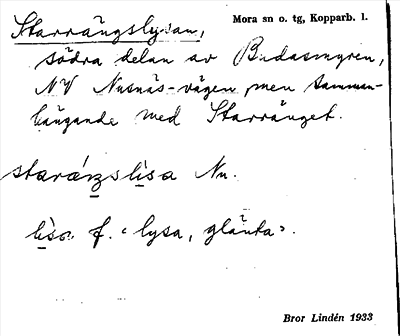 Starrängslysan,
Mora sn o. tg, Kopparb. l.
södra delen av Budasmyren,
NV Nusnäs-vägen, men samman-
hängande med Starränget.
staránzslìsa Nu.
lìsa f. "lysa, glänta".
Bror Lindén 1933